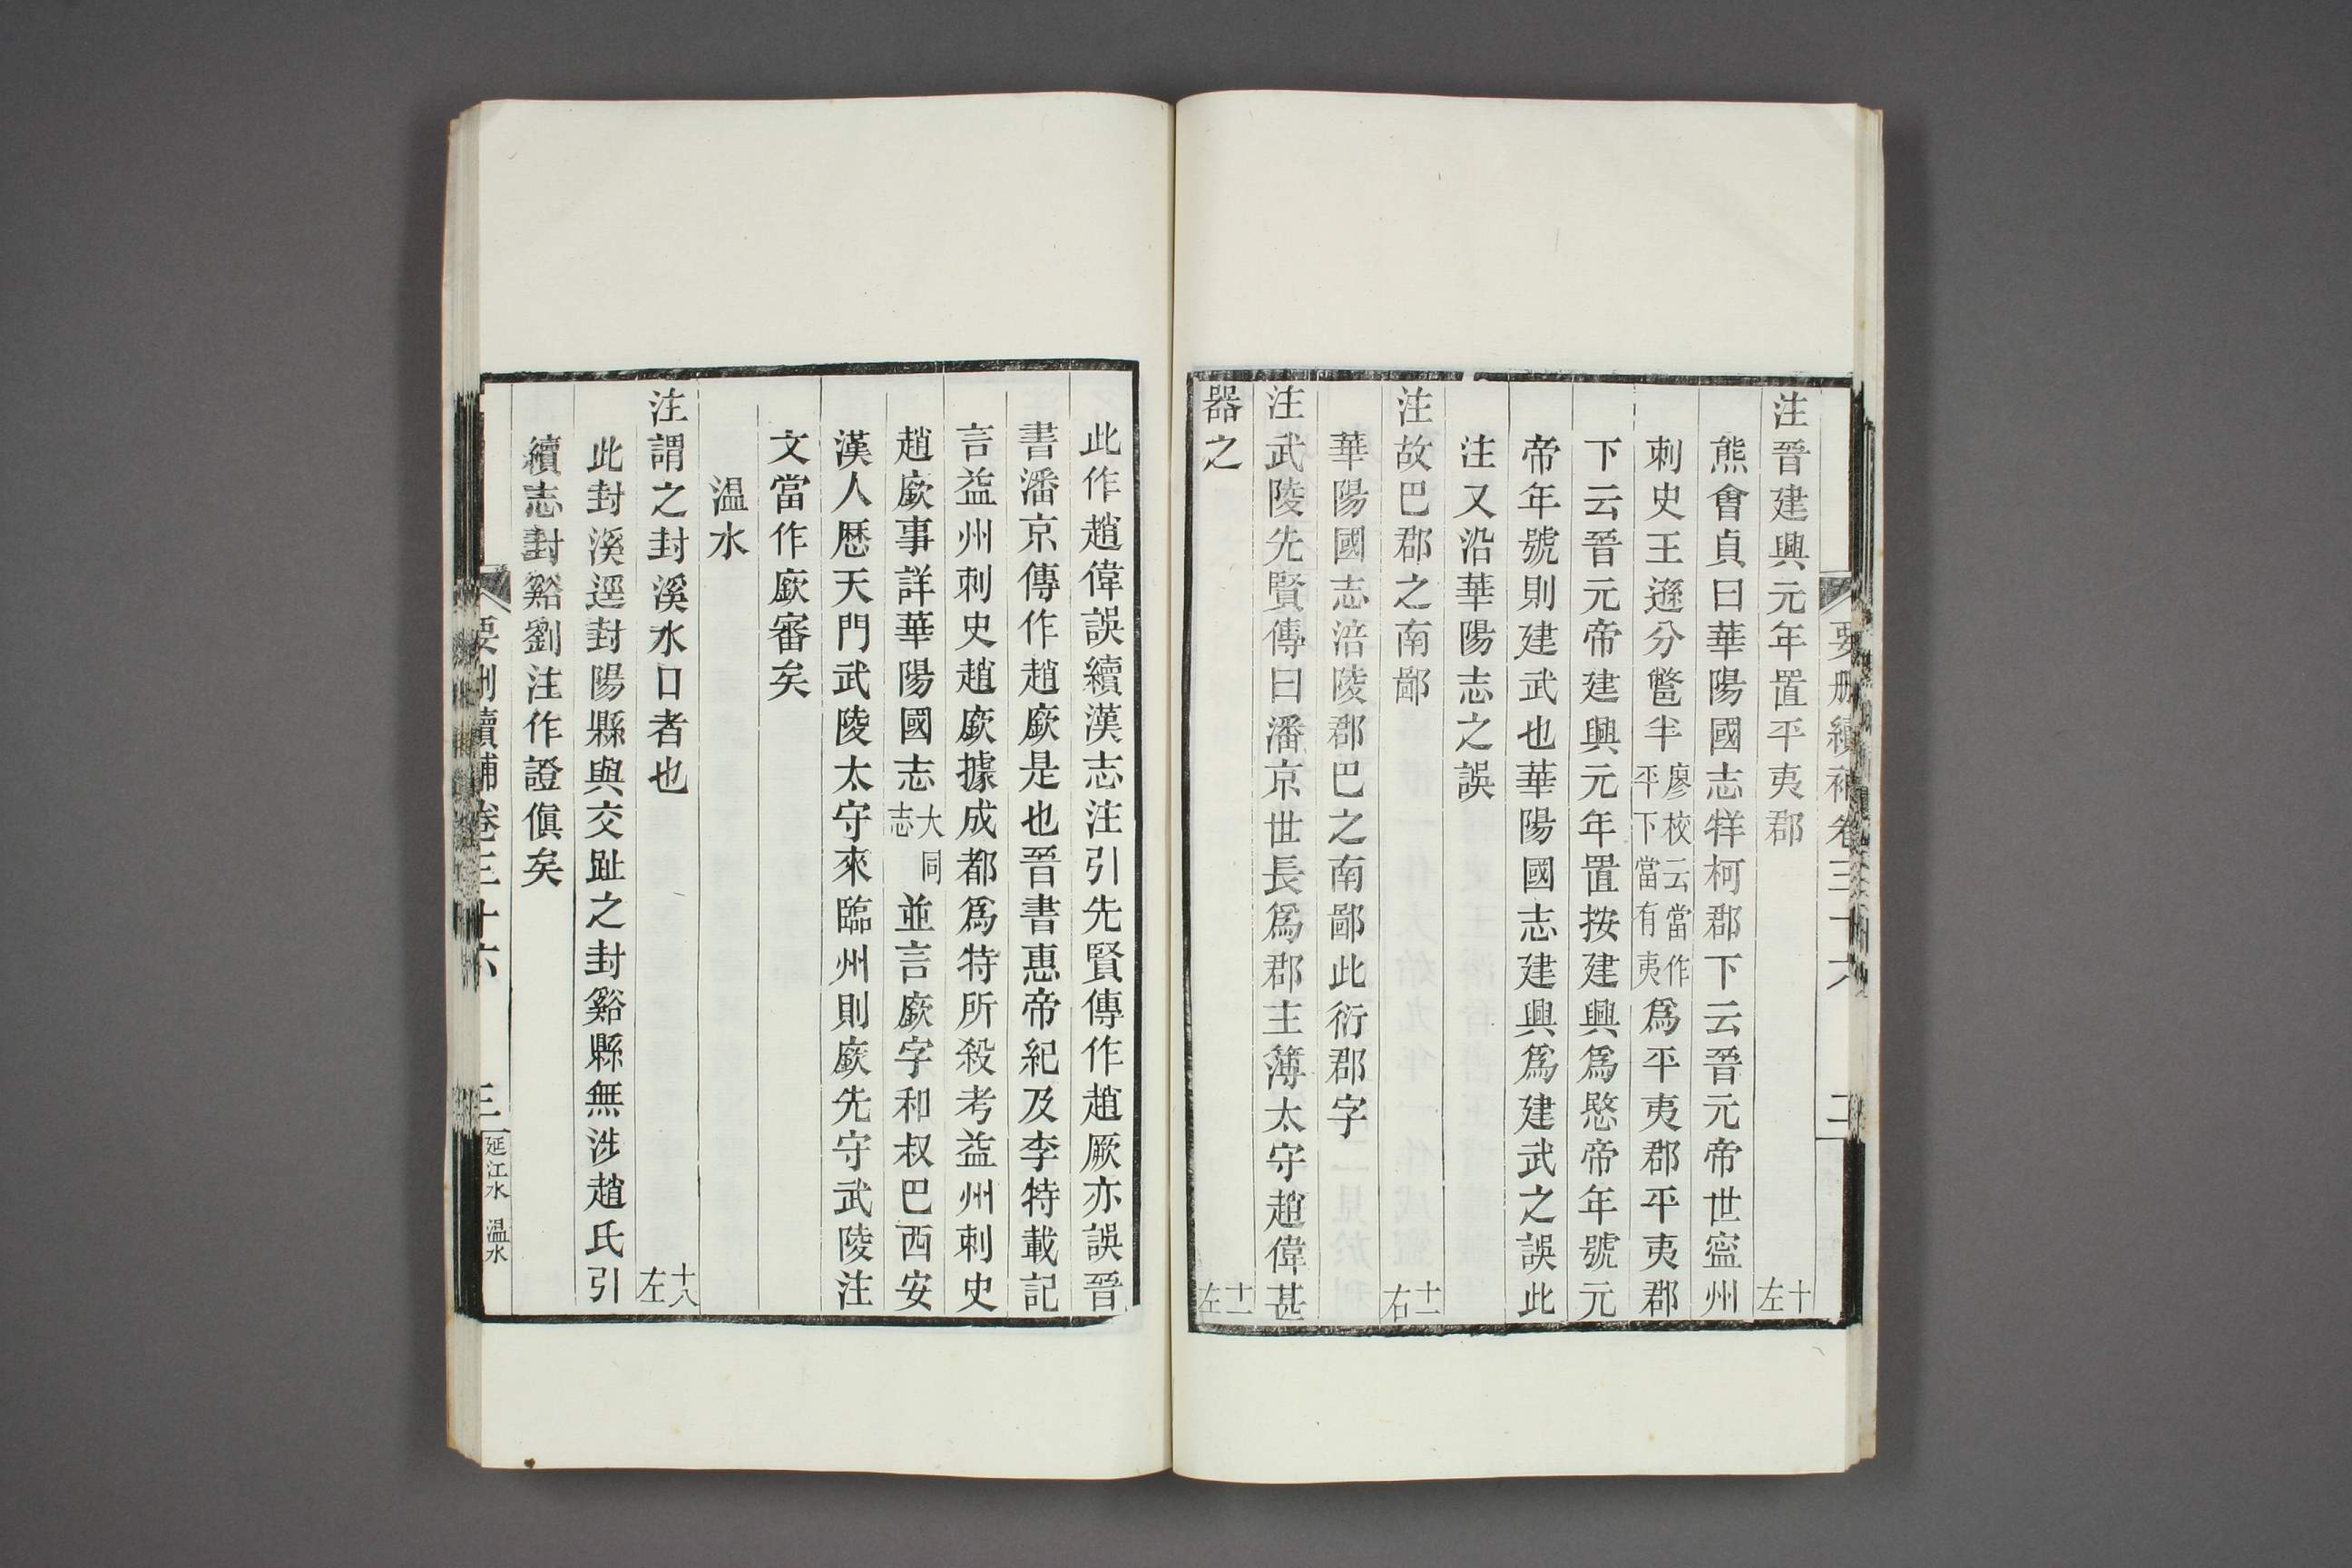 要刪續補卷三十六
注晉建興元年置平夷郡 十左
熊會貞曰華陽國志牂柯郡下云晉元帝世寍州
刺史王遜分鄨半廖校云當作平下當有夷爲平夷郡平夷郡
下云晉元帝建興元年置按建興爲愍帝年號元
帝年號則建武也華陽國志建興爲建武之誤此
注又沿華陽志之誤
注故巴郡之南鄙 十一右
華陽國志涪陵郡巴之南鄙此衍郡字
注武陵先賢傳曰潘京世長爲郡主簿太守趙偉甚
器之 十一左
此作趙偉誤續漢志注引先賢傳作趙厥亦誤晉
書潘京傳作趙廞是也晉書惠帝紀及李特載記
言益州刺史趙廞據成都爲特所殺考益州刺史
趙廞事詳華陽國志大同志並言廞字和叔巴西安
漢人歷天門武陵太守來臨州則廞先守武陵注
文當作廞審矣
温水
注謂之封溪水口者也 十八左
此封溪逕封陽縣與交趾之封谿縣無涉趙氏引
續志封谿劉注作證傎矣
要刪續補卷三十六 三 延江水 温水